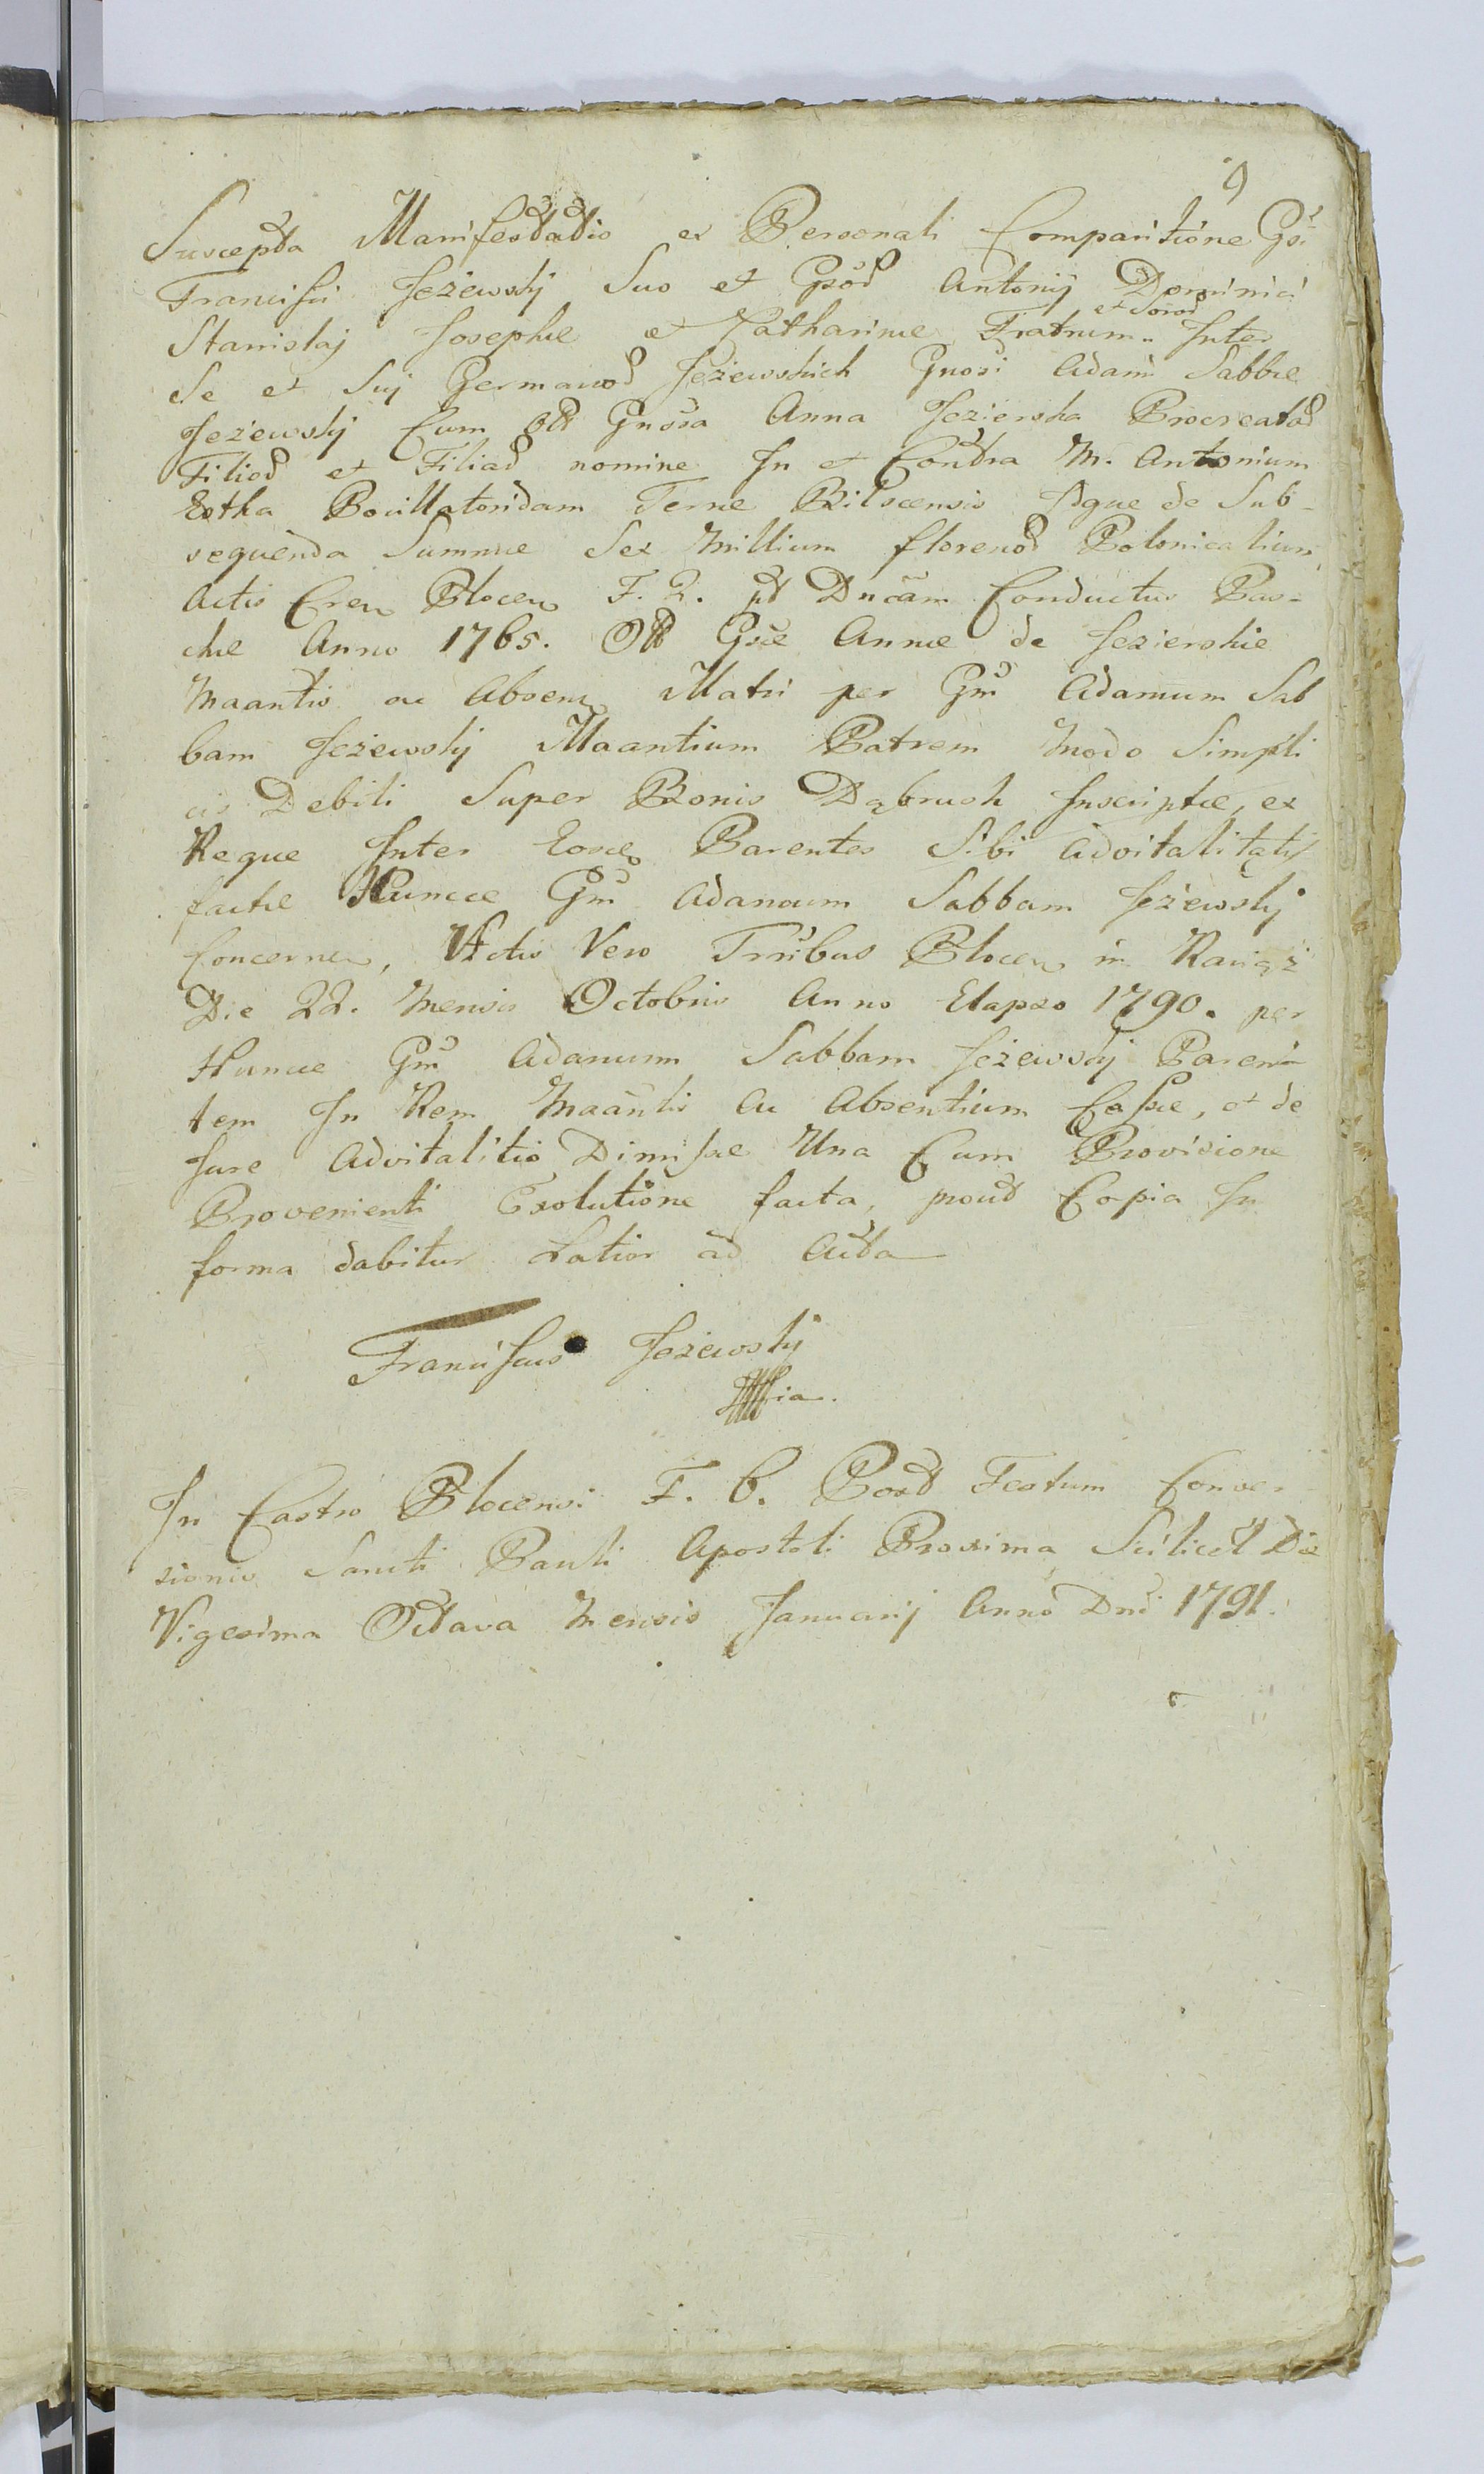 9
Suscepta Manifestatio ex Personali Comparitione Gsi
Francisci Jeżewskij Suo et Gsor Antonij Dominici
Stanislaj Josephae et Catharinae Fratrum et Soror Inter
Se et Suj Germanor Jeżewskich Gnosi Adami Sabbae
Jeżewskij Cum olt Gnosa Anna Jezierska Procreator
Filior et Filiar nomine In et Contra M. Antonium
Terrae Bilscensis Idque de Sub-
sequenda Summae Sex Millium florenor Polonicalium
Actis Cren Plocen F. 2. pt Dncam Conductus Pas-
chae Anno 1765. Olt Gsae Annae de Jezierskie
Maantis ac Absen Matri per Gm Adamum Sab
bam Jeżewskij Maantium Patrem Modo Simpli
cis Debiti Super Bonis Dąbrusk Inscriptae, ex
Reque Inter Eosce Parentes Sibi Advitalitatis
factae Huncce Gm Adamum Sabbam Jeżewskij
Concernen, Actis Vero Trribus Plocen in Raciąż
Die 22. Mensis Octobris Anno Elapso 1790. per
Huncce Gm Adamum Sabbam Jeżewskij Paren-
tem In Rem Maantis ac Absentium Cessae, et de
Jure Advitalitio Dimissae Una Cum Provisione
Provenienti Exolutione facta, prout Copia In
forma dabitur Latior ad Acta
Franciscus Jeżewskij
In Castro Plocensi F. 6. Post Festum Conver
sionis Sancti Pauli Apostoli Proxima Scilicet Die
Vigesima Octava Mensis Januarij Anno Dni 1791.